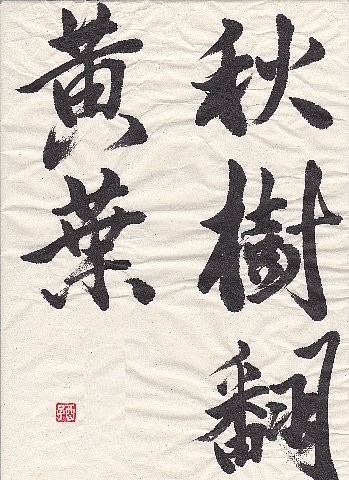 秋樹翻
黄葉